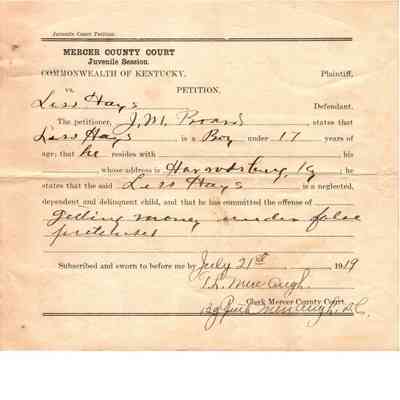 Juvenile Court Petition.
MERCER COUNTY COURT
Juvenile Session.
COMMONWEALTH OF KENTUCKY, Plaintiff,
vs. PETITION.
Less Hays Defendant.
The petitioner, J. M. Board, states that
Less Hays is a Boy under 17 years of
age; that he resides with his
whose address is Harrodsburg, Ky; he
states that the said Less Hays is a neglected,
dependent and delinquent child, and that he has committed the offense of
getting money under false
pretenses
Subscribed and sworn to before me by July 21st 1919
Clerk Mercer County Court.